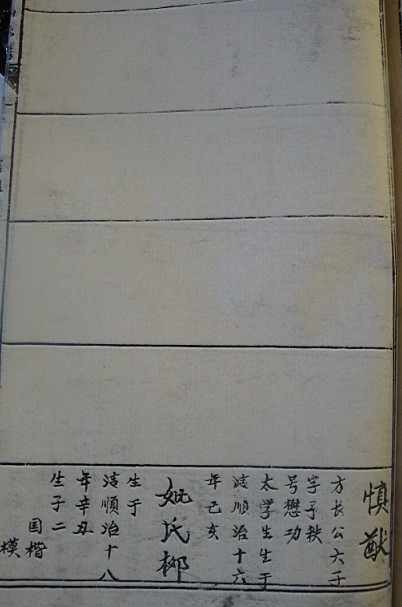 慎猷
方长公六子
字子秩
号懋功
太学生生于
清順治十六
年己亥
妣氏柳
生于
清順治十八
年辛丑
生子二
国楷
模